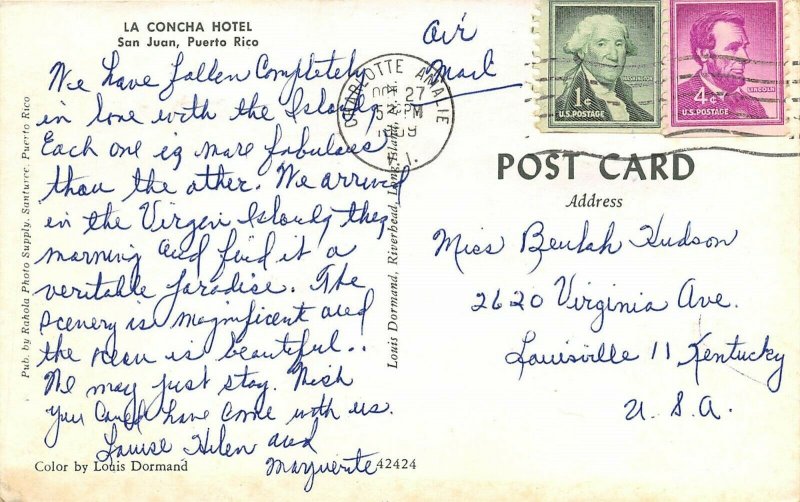 LA CONCHA HOTEL
San Juan, Puerto Rico
We have fallen Completely
in love with the Islands
Each one is more fabulous
than the other. We arrived
in the Virgin Islands this
morning and find it a
veritable paradise. The
scenery is magnificent and
the ocean is beautiful..
We may just stay. Wish
you could have come with us.
Louise Helen and
Marguerite
Color by Louis Dormand
42424
Pub. by Rahola Photo Supply, Santurce, Puerto Rico
Louis Dormand, Riverhead, Long Island,
Air
Mail
CHARLOTTE AMALIE
OCT 27
PM
V.I.
1¢
WASHINGTON
U.S. POSTAGE
4¢
LINCOLN
U.S. POSTAGE
POST CARD
Address
Miss Beulah Hudson
2620 Virginia Ave.
Louisville 11 Kentucky
U.S.A.